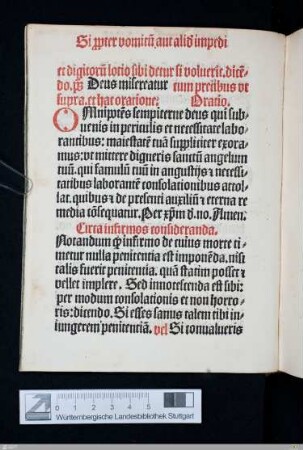 Si ꝓpter vomitū aut aliđ impedi
et digitorū lotio sibi detur si voluerit. dicē
do. p̄s Deus misereatur cum precibus vt
supra. et hac oratione: Oratio.
OMnipotēs sempiterne deus qui sub
uenis in periculis et necessitate labo
rantibus: maiestatē tuā suppliciter exora
mus: vt mittere digneris sanctū angelum
tuū. qui famulū tuū in angustijs et necessi
tatibus laborantē consolationibus attol
lat. quibus et de presenti auxiliū et eterna re
media cōsequatur. Per xp̄m d. no. Amen.
Circa infirmos consideranda.
Notandum ꝙ infirmo de cuius morte ti
metur nulla penitentia est imponēda. nisi
talis fuerit penitentia. quā statim posset et
vellet implere. Sed innotescenda est sibi:
per modum consolationis et non horro-
ris: dicendo. Si esses sanus talem tibi in
iungerem penitenciā. vel Si conualueris
0 1 2 3 4 5
Württembergische Landesbibliothek Stuttgart